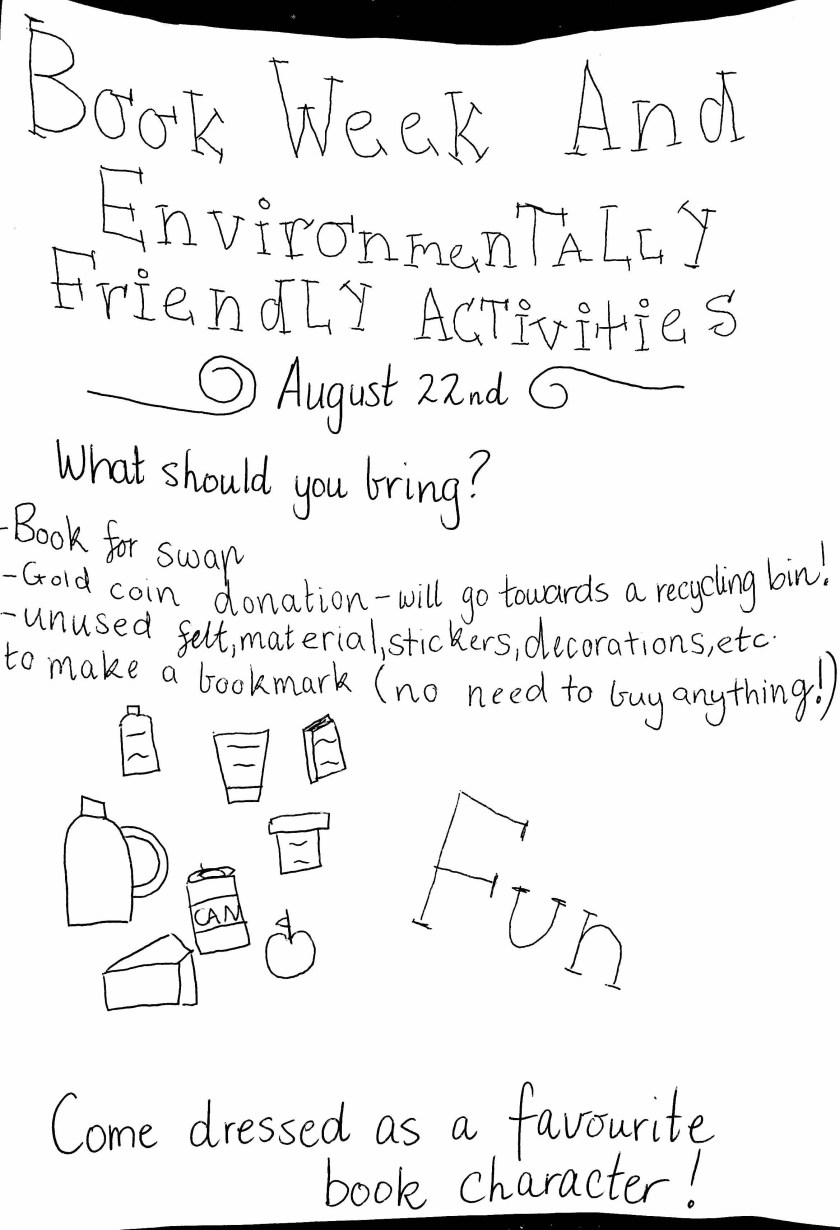 Book Week And
EnvironmenTALLY
FriendLY ACTivities
August 22nd
What should you bring?
-Book for swap
-Gold coin donation-will go towards a recycling bin!
-unused felt,material,stickers,decorations,etc.
to make a bookmark (no need to buy anything!)
CAN
Fun
Come dressed as a favourite
book character!